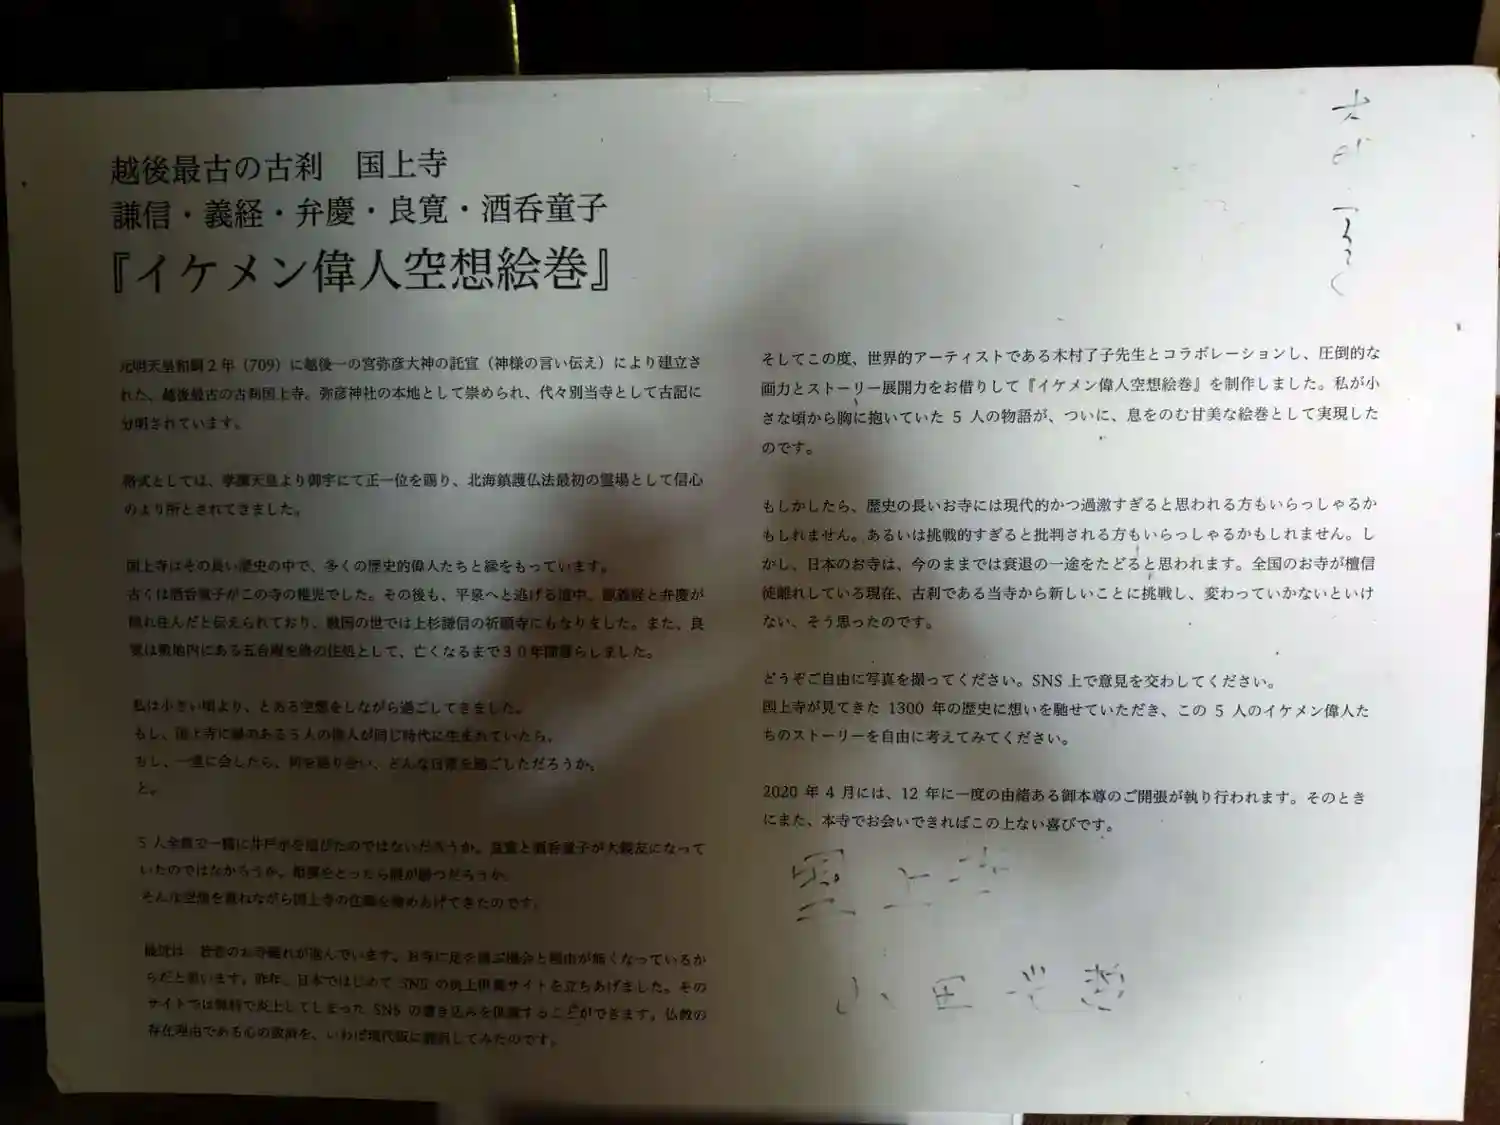 越後最古の古刹　国上寺
謙信・義経・弁慶・良寛・酒呑童子
『イケメン偉人空想絵巻』
元明天皇和銅２年（709）に越後一の宮弥彦大神の託宣（神様の言い伝え）により建立さ
れた、越後最古の古刹国上寺。弥彦神社の本地として崇められ、代々別当寺として古記に
分明されています。
格式としては、孝謙天皇より御宇にて正一位を賜り、北海鎮護仏法最初の霊場として信心
のより所とされてきました。
国上寺はその長い歴史の中で、多くの歴史的偉人たちと縁をもっています。
古くは酒呑童子がこの寺の稚児でした。その後も、平泉へと逃げる道中、源義経と弁慶が
隠れ住んだと伝えられており、戦国の世では上杉謙信の祈願寺にもなりました。また、良
寛は敷地内にある五合庵を終の住処として、亡くなるまで３０年間暮らしました。
私は小さい頃より、とある空想をしながら過ごしてきました。
もし、国上寺に縁のある５人の偉人が同じ時代に生まれていたら。
もし、一堂に会したら、何を語り合い、どんな日常を過ごしただろうか。
と。
５人全員で一緒に井戸水を浴びたのではないだろうか。良寛と酒呑童子が大親友になって
いたのではなかろうか。相撲をとったら誰が勝つだろうか。
そんな空想を重ねながら国上寺の住職を務めあげてきたのです。
最近は、若者のお寺離れが進んでいます。お寺に足を運ぶ機会と理由が無くなっているか
らだと思います。昨年、日本ではじめて SNS の炎上供養サイトを立ちあげました。その
サイトでは無料で炎上してしまった SNS の書き込みを供養することができます。仏教の
存在理由である心の救済を、いわば現代版に翻訳してみたのです。
そしてこの度、世界的アーティストである木村了子先生とコラボレーションし、圧倒的な
画力とストーリー展開力をお借りして『イケメン偉人空想絵巻』を制作しました。私が小
さな頃から胸に抱いていた 5 人の物語が、ついに、息をのむ甘美な絵巻として実現した
のです。
もしかしたら、歴史の長いお寺には現代的かつ過激すぎると思われる方もいらっしゃるか
もしれません。あるいは挑戦的すぎると批判される方もいらっしゃるかもしれません。し
かし、日本のお寺は、今のままでは衰退の一途をたどると思われます。全国のお寺が檀信
徒離れしている現在、古刹である当寺から新しいことに挑戦し、変わっていかないといけ
ない、そう思ったのです。
どうぞご自由に写真を撮ってください。SNS 上で意見を交わしてください。
国上寺が見てきた 1300 年の歴史に想いを馳せていただき、この 5 人のイケメン偉人た
ちのストーリーを自由に考えてみてください。
2020 年 4 月には、12 年に一度の由緒ある御本尊のご開張が執り行われます。そのとき
にまた、本寺でお会いできればこの上ない喜びです。